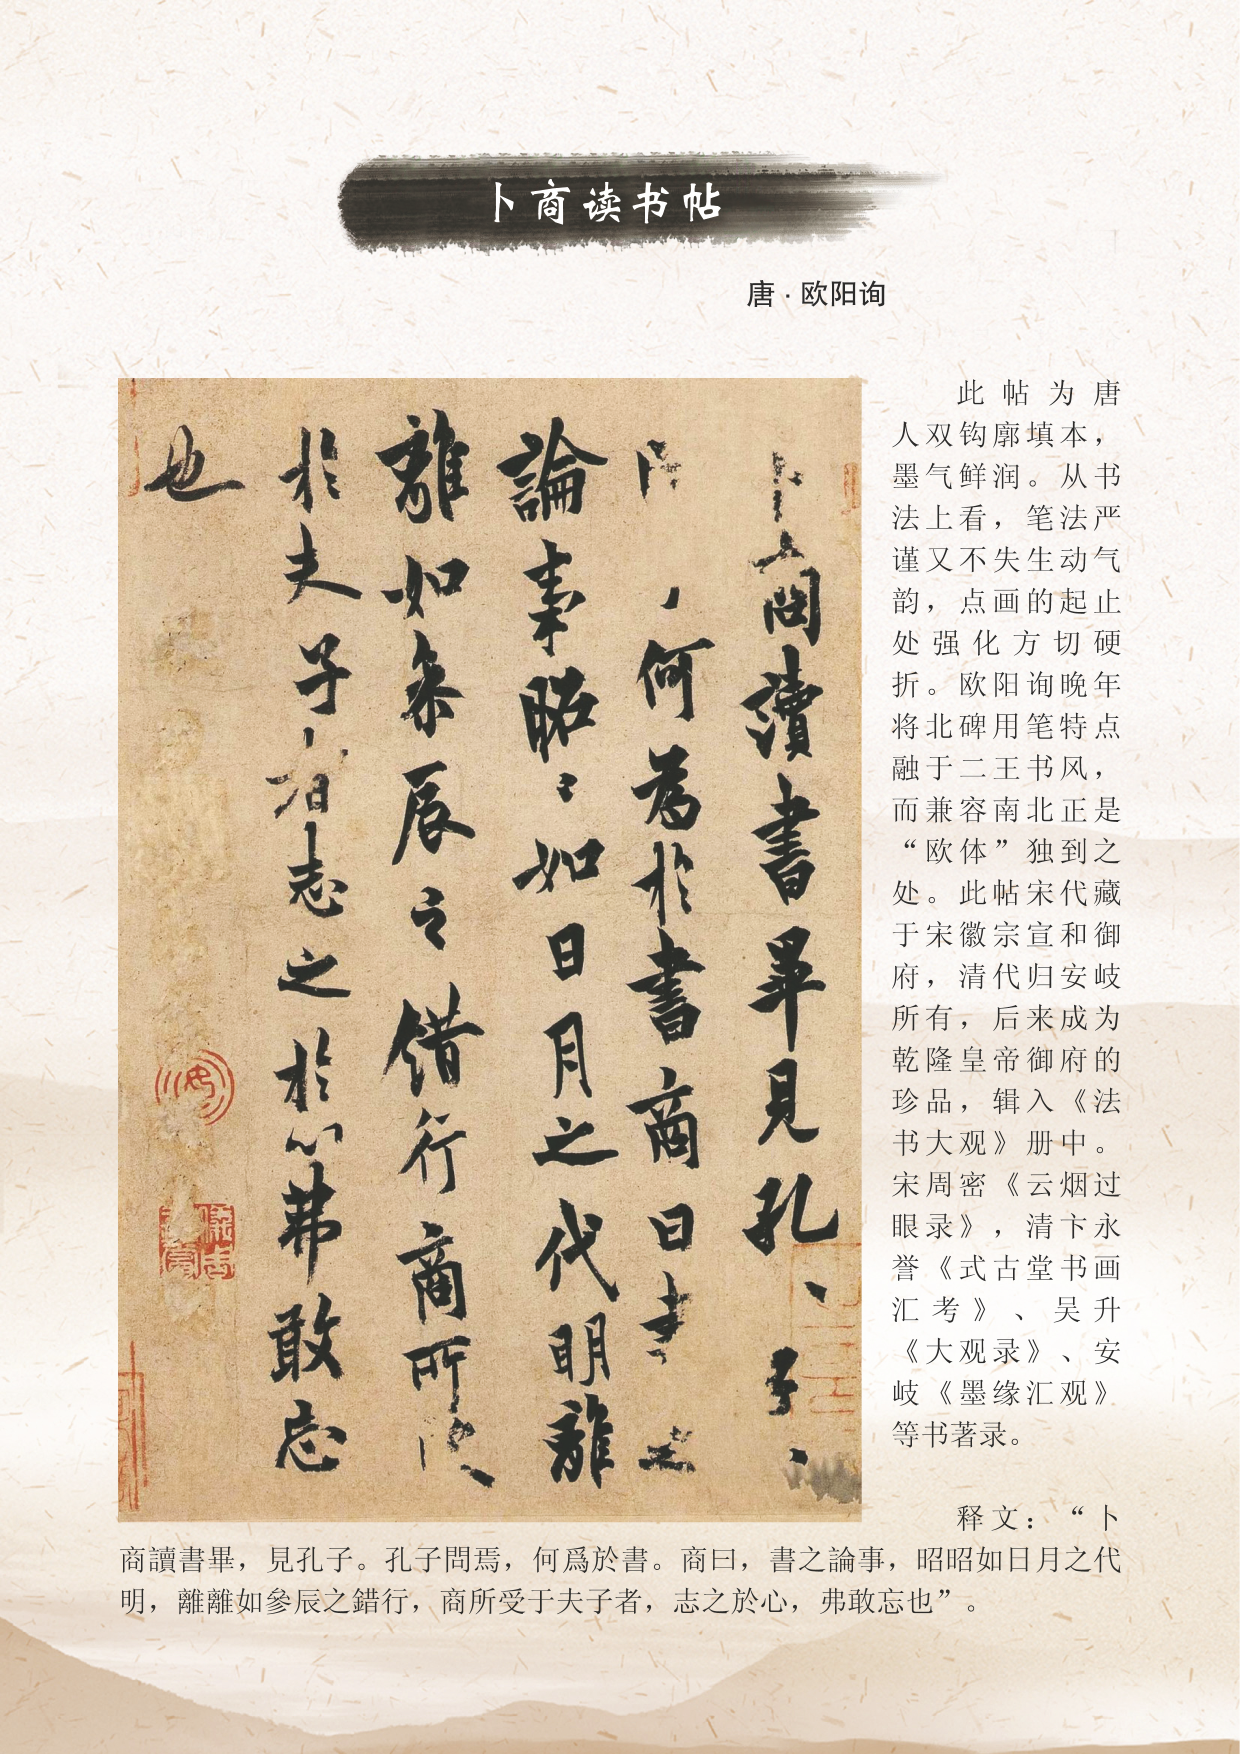 卜商读书帖
唐·欧阳询
此帖为唐
人双钩廓填本，
墨气鲜润。从书
法上看，笔法严
谨又不失生动气
韵，点画的起止
处强化方切硬
折。欧阳询晚年
将北碑用笔特点
融于二王书风，
而兼容南北正是
“欧体”独到之
处。此帖宋代藏
于宋徽宗宣和御
府，清代归安岐
所有，后来成为
乾隆皇帝御府的
珍品，辑入《法
书大观》册中。
宋周密《云烟过
眼录》，清卞永
誉《式古堂书画
汇考》、吴升
《大观录》、安
岐《墨缘汇观》
等书著录。
卜商讀書畢見孔
何為於書商曰書之
論事昭〻如日月之代明離
離如參辰之錯行商所受
於夫子者志之於心弗敢忘
也
释文：“卜
商讀書畢，見孔子。孔子問焉，何爲於書。商曰，書之論事，昭昭如日月之代
明，離離如參辰之錯行，商所受于夫子者，志之於心，弗敢忘也”。